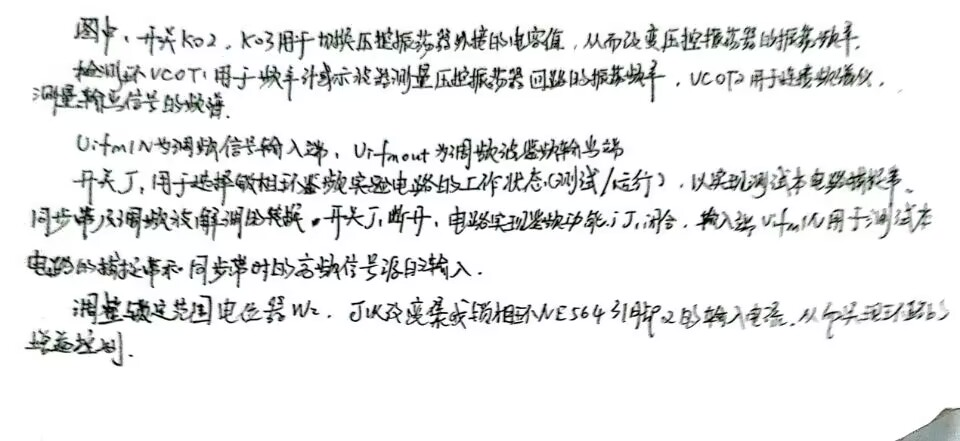 图中，开关K02，K03用于切换压控振荡器外接的电容值，从而改变压控振荡器的振荡频率．
检测环VCOT1用于频率计或示波器测量压控振荡器回路的振荡频率，VCOT2用于连接频谱仪，
测量输出信号的频谱．
UifmIN为调频信号输入端，Uifmout为调频波鉴频输出端
开关J1用于选择锁相环鉴频实验电路的工作状态(测试/运行)，以实现测试本电路捕捉带、
同步带及调频波解调的转换。开关J1断开，电路实现鉴频功能；J1闭合，输入端UifmIN用于测试本
电路的捕捉带和同步带时的高频信号源的输入．
调整锁定范围电位器W2，可以改变集成锁相环NE564引脚2的输入电流，从实现环路的
增益控制．